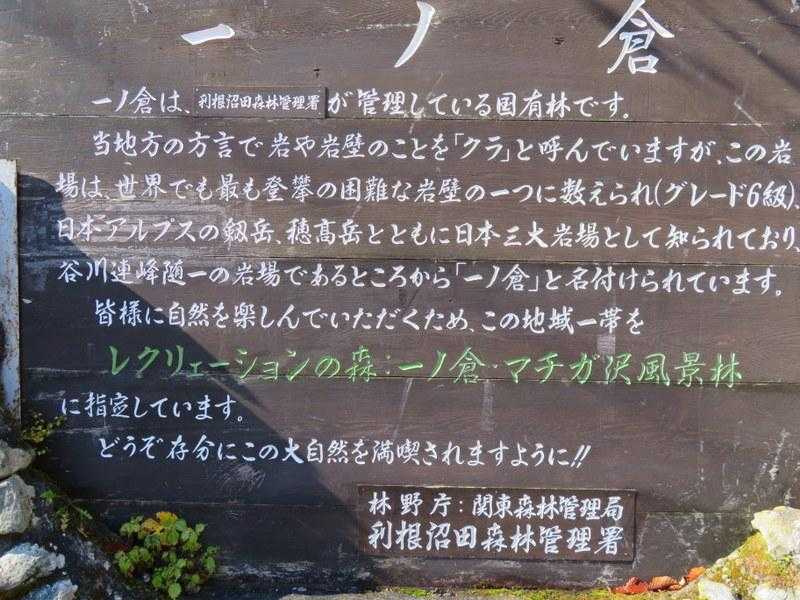 一ノ倉
一ノ倉は、利根沼田森林管理署が管理している国有林です。
当地方の方言で岩や岩壁のことを「クラ」と呼んでいますが、この岩
場は、世界でも最も登攀の困難な岩壁の一つに数えられ(グレード6級)、
日本アルプスの剱岳、穂高岳とともに日本三大岩場として知られており、
谷川連峰随一の岩場であるところから「一ノ倉」と名付けられています。
皆様に自然を楽しんでいただくため、この地域一帯を
レクリェーションの森:一ノ倉・マチガ沢風景林
に指定しています。
どうぞ存分にこの大自然を満喫されますように!!
林野庁:関東森林管理局
利根沼田森林管理署